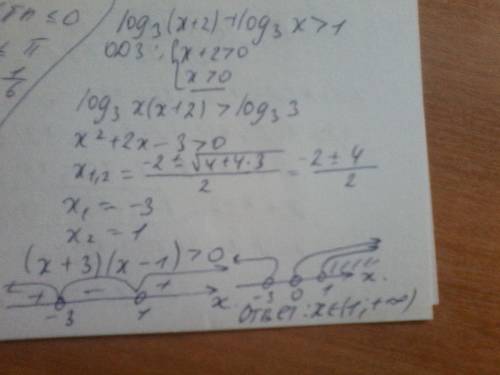 ≤ 0
≤ π
1/6
log₃(x+2)+log₃x>1
ОДЗ: {x+2>0
x>0
log₃ x(x+2) > log₃ 3
x²+2x-3>0
x₁,₂ = (-2 ± √(4+4·3))/2 = (-2 ± 4)/2
x₁ = -3
x₂ = 1
(x+3)(x-1)>0
+ - + x
-3 1
-3 0 1 x
Ответ: x∈(1;+∞)